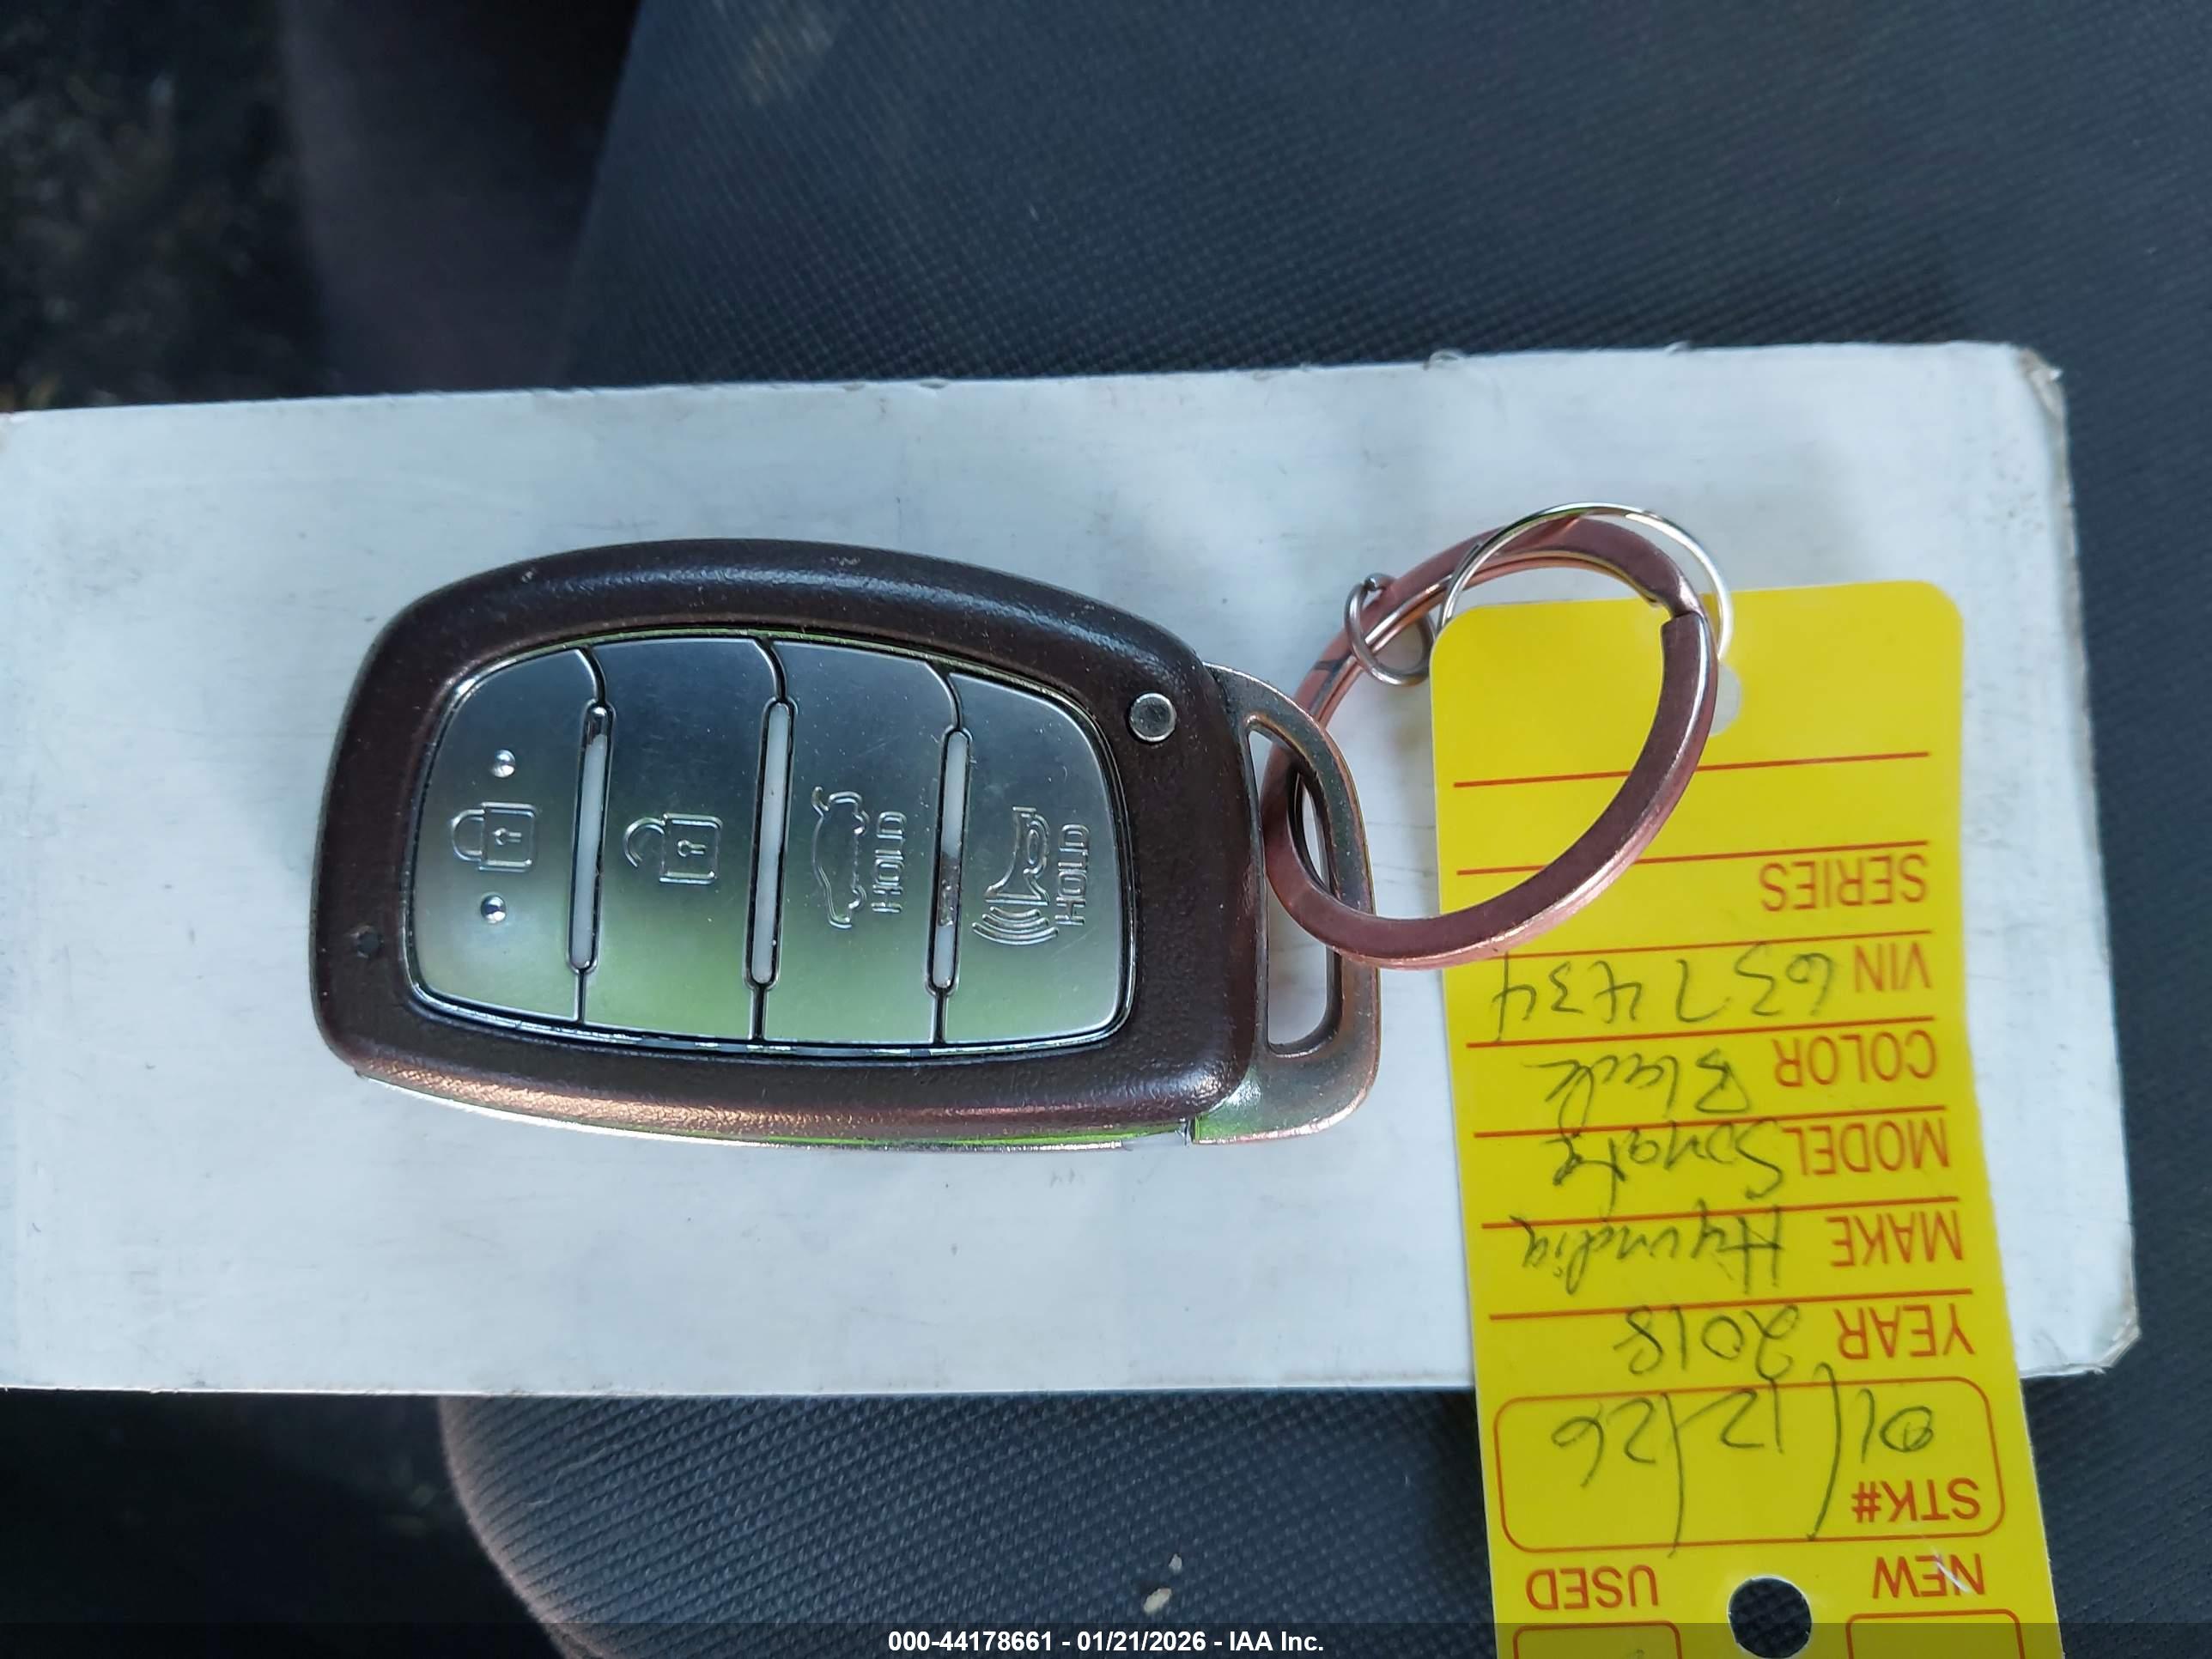 HOLD
HOLD
NEW USED
STK#
01/12/26
YEAR 2018
MAKE Hyundia
MODEL Sonata
COLOR Black
VIN 637434
SERIES
000-44178661 - 01/21/2026 - IAA Inc.